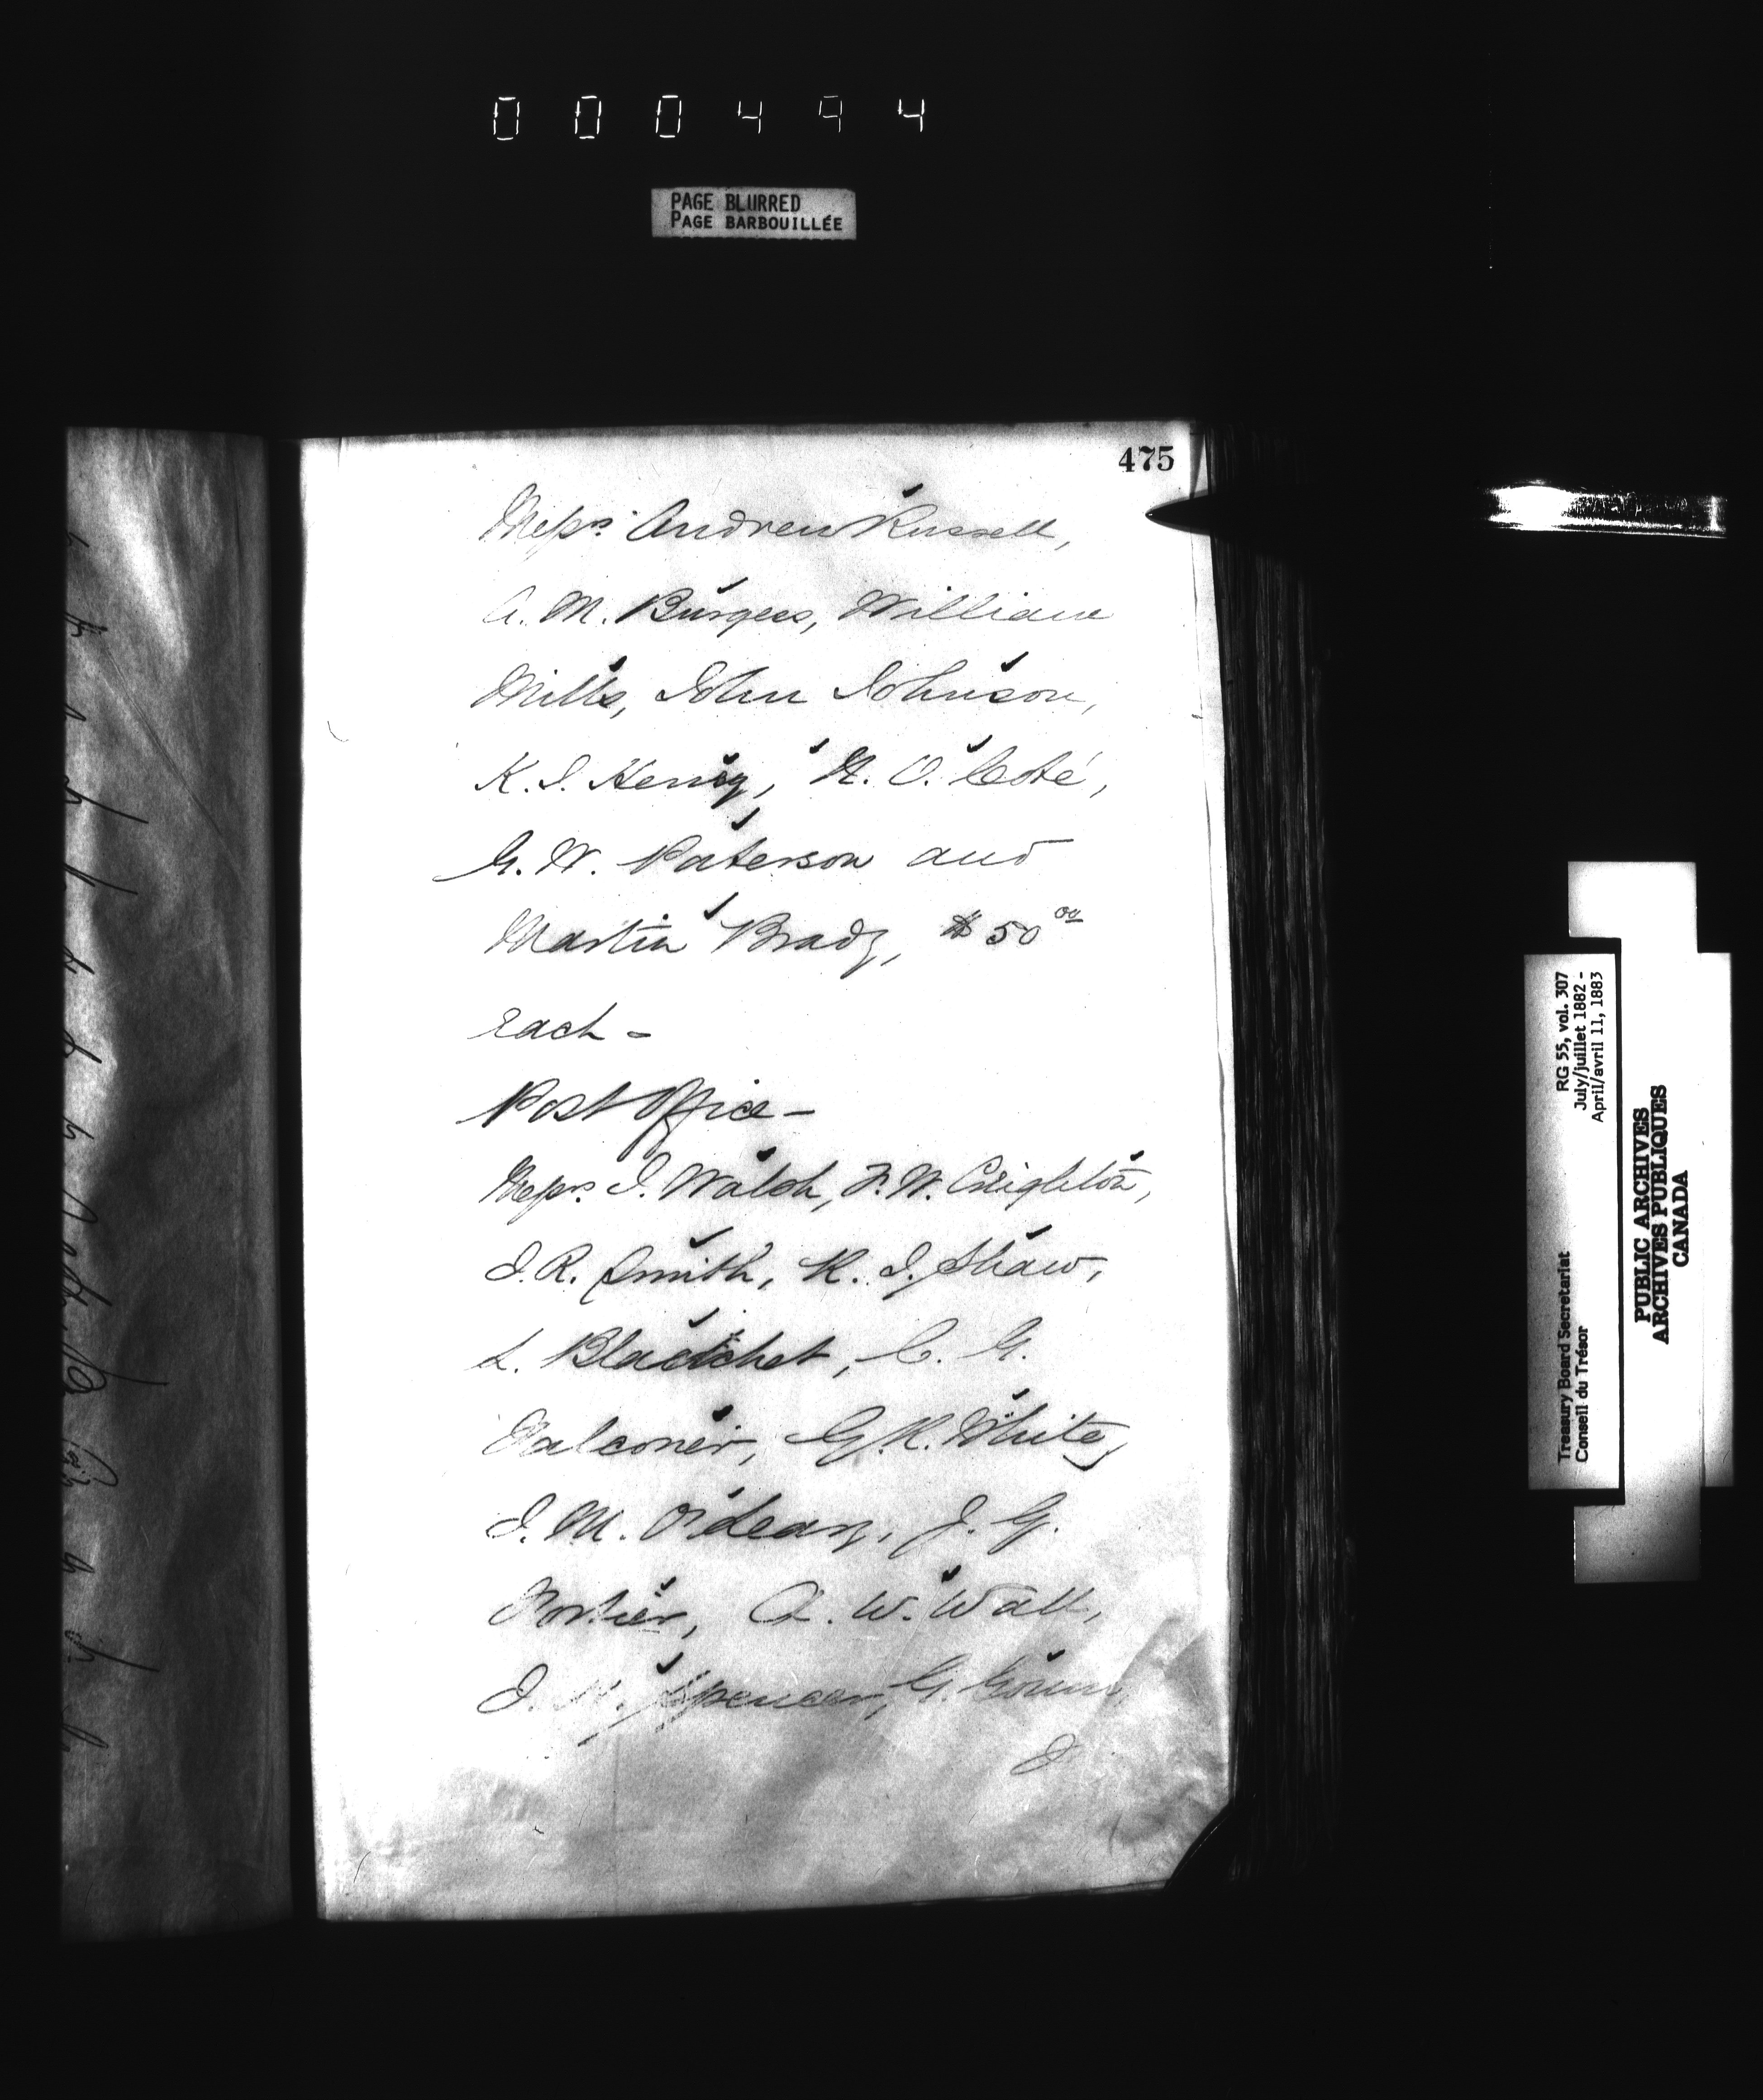 000494
PAGE BLURRED
PAGE BARBOUILLÉE
475
Messrs. Andrew Russell,
A. M. Burgess, William
Mills, John Johnson,
K. J. Henry, N. O. Coté,
G. W. Paterson and
Martin Brady, $50.00
each -
Post Office -
Messrs. J. Walsh, F. W. Creighton,
J. R. Smith, R. J. Shaw,
L. Blanchet, C. G.
Falconer, G. R. White,
J. M. O'Leary, J. G.
Poston, A. W. Wall,
J. Spencer, G.
J
RG 55, vol. 307
July/juillet 1882 -
April/avril 11, 1883
Treasury Board Secretariat
Conseil du Trésor
PUBLIC ARCHIVES
ARCHIVES PUBLIQUES
CANADA